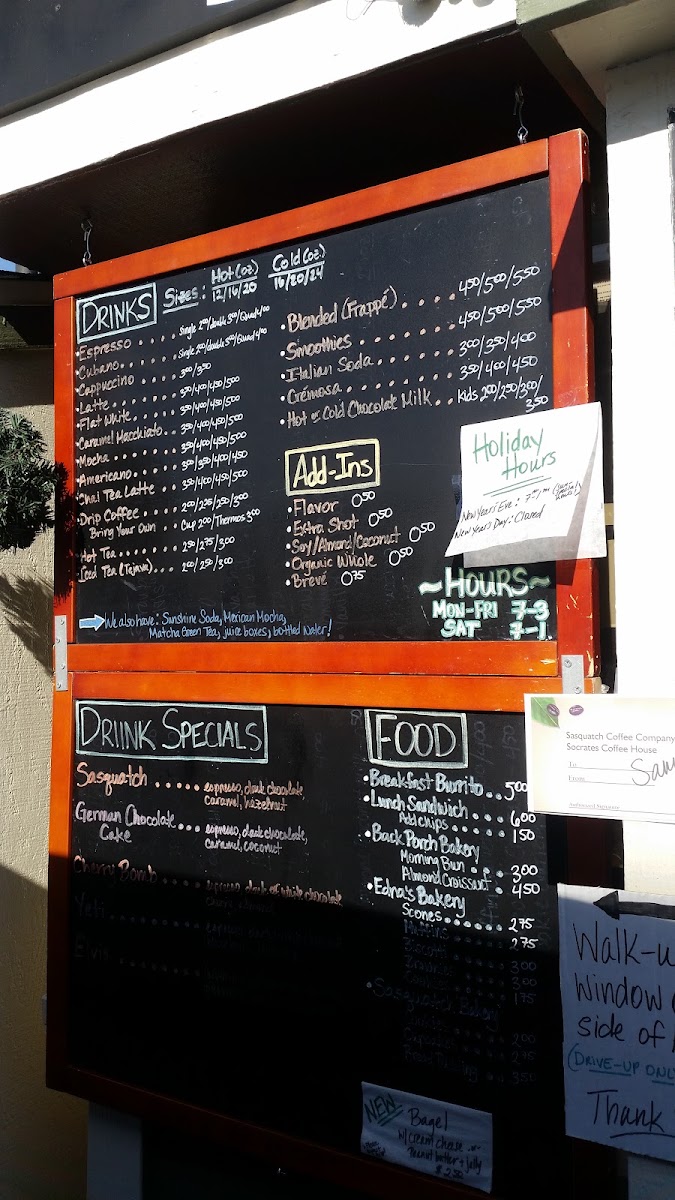 DRINKS
Sizes: Hot (oz.) 12/16/20 Cold (oz.) 16/20/24
• Espresso ..... Single 2⁰⁰/double 3⁰⁰/Quad 4⁰⁰
• Cubano ..... Single 2⁰⁰/double 3⁰⁰/Quad 4⁰⁰
• Cappuccino ..... 3⁰⁰/3⁵⁰
• Latte ..... 3⁵⁰/4⁰⁰/4⁵⁰/5⁰⁰
• Flat White ..... 3⁵⁰/4⁰⁰/4⁵⁰/5⁰⁰
• Caramel Macchiato .. 3⁵⁰/4⁰⁰/4⁵⁰/5⁰⁰
• Mocha ..... 3⁵⁰/4⁰⁰/4⁵⁰/5⁰⁰
• Americano ..... 3⁵⁰/4⁰⁰
• Chai Tea Latte 3⁵⁰/4⁰⁰/4⁵⁰/5⁰⁰
• Drip Coffee ..... 2⁰⁰/2²⁵/2⁵⁰/3⁰⁰
Bring Your Own .. Cup 2⁰⁰/Thermos 3⁰⁰
• Hot Tea ..... 2⁵⁰/2⁷⁵/3⁰⁰
• Iced Tea (Tejava) .. 2⁰⁰/2⁵⁰/3⁰⁰
• Blended (Frappé) .... 4⁵⁰/5⁰⁰/5⁵⁰
• Smoothies ..... 4⁵⁰/5⁰⁰/5⁵⁰
• Italian Soda ..... 3⁰⁰/3⁵⁰/4⁰⁰
• Crémosa ..... 3⁵⁰/4⁰⁰/4⁵⁰
• Hot or Cold Chocolate Milk .. Kids 2⁰⁰/2⁵⁰/3⁰⁰/
3⁵⁰
Add-Ins
• Flavor 0⁵⁰
• Extra Shot 0⁵⁰
• Soy/Almond/Coconut 0⁵⁰
• Organic Whole 0⁵⁰
• Brevé 0⁷⁵
Holiday
Hours
New Year's Eve: 7
New Years Day: Closed
~HOURS~
MON-FRI 7-3
SAT 7-1
We also have: Sunshine Soda, Mexican Mocha,
Matcha Green Tea, juice boxes, bottled water!
DRIINK SPECIALS
Sasquatch ..... espresso, dark chocolate,
caramel, hazelnut
German Chocolate ... espresso, dark chocolate,
Cake caramel, coconut
Cherry Bomb ..... espresso, dark or white chocolate,
Yeti
Elvis
FOOD
• Breakfast Burrito .. 5⁰⁰
• Lunch Sandwich ... 6⁰⁰
Add chips .... 1⁵⁰
• Back Porch Bakery
Morning Bun .. 3⁰⁰
Almond Croissant . 4⁵⁰
• Edna's Bakery
Scones ...... 2⁷⁵
Muffins 2⁷⁵
Biscotti
Brownies 3⁰⁰
Cookies 1⁷⁵
• Sasquatch Bakery
Cookies 2⁰⁰
Cupcakes
Bread Pudding 3⁵⁰
NEW
Bagel
w/cream cheese or
Peanut butter + jelly
$ 2.50
Sasquatch Coffee Company
Socrates Coffee House
To
From
Authorized Signature
Walk-u
window
side of
(DRIVE-UP ONL
Thank